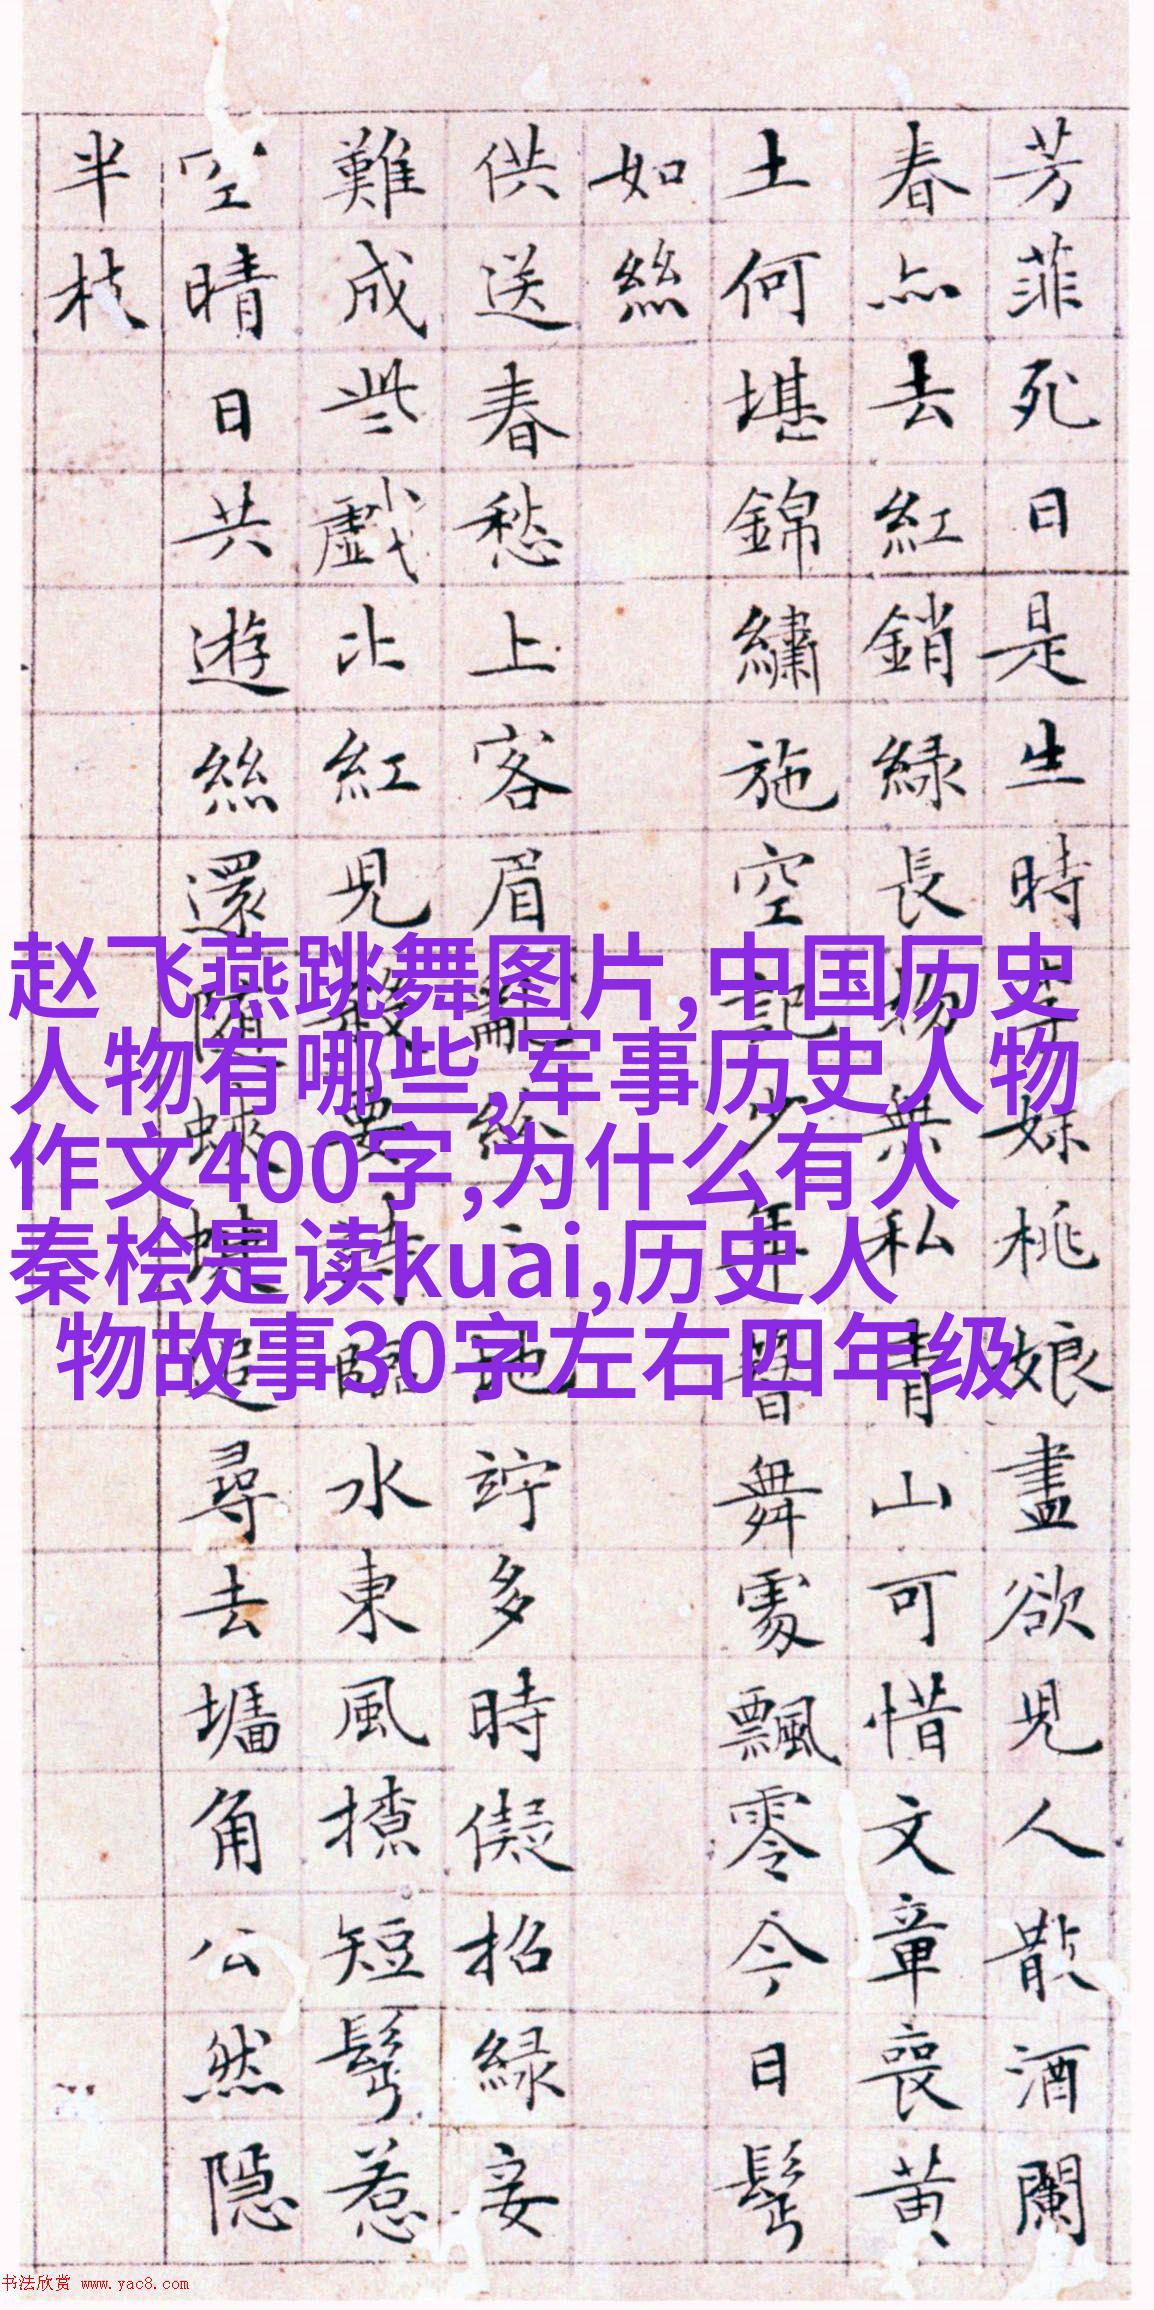 芳菲死日是生時李妹桃娘盡欲兒人散酒闌
春亦去紅銷綠長物無私青山可惜文章喪黃
土何堪錦繡施空記少年簪舞處飄零今日鬢
如絲
供送春愁上客眉亂紛〻地竚多時儗招綠妾
難成些戲比紅兒殺要詩臨水東風撩短鬢惹
空晴日共遊絲還隨蛺蝶追尋去墻角公然隱
半枝
赵飞燕跳舞图片,中国历史
人物有哪些,军事历史人物
作文400字,为什么有人
秦桧是读kuai,历史人
物故事30字左右四年级
书法欣赏 www.yac8.com